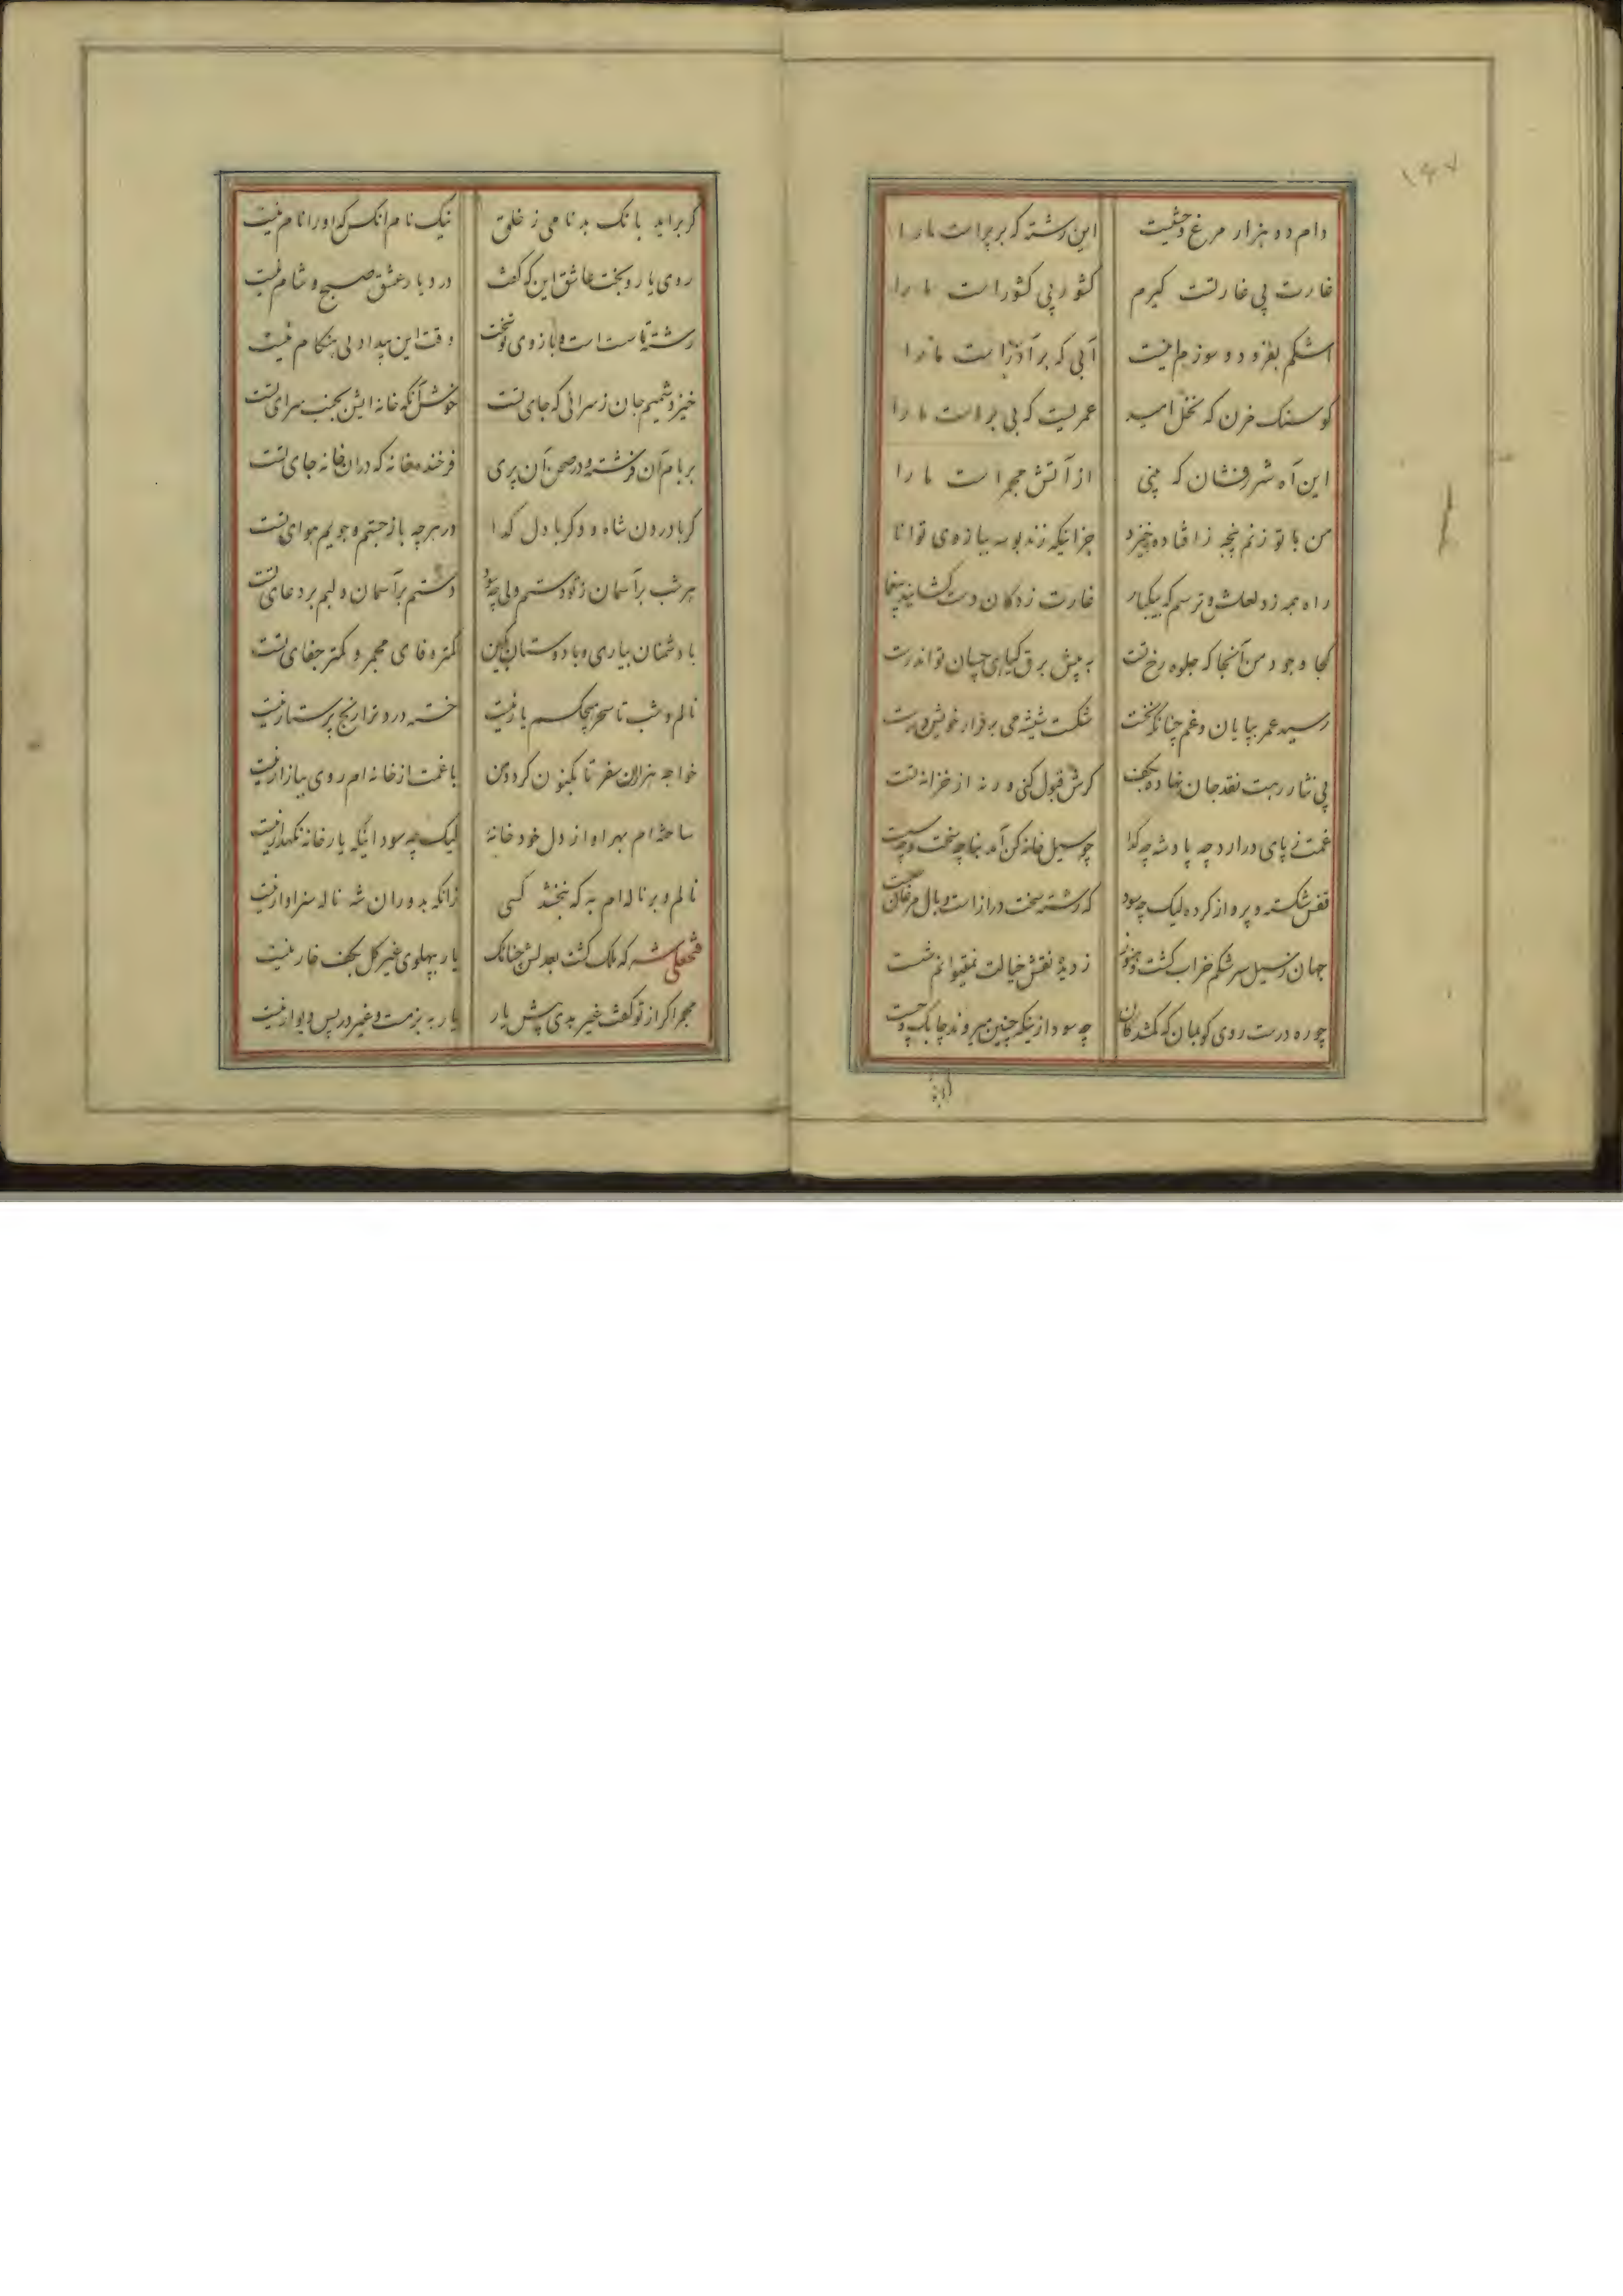 ۱۶۷
دام دو هزار مرغ وحشیست
این رشته که بر پر است ما را
غارت پی غارتست کیرم
کشور پی کشور است ما را
اشکم بفزود و سوزم اینست
آبی که بر آذر است ما را
کو سنک مزن که نخل امید
عمریست که بی بر است ما را
این آه شررفشان که بینی
از آتش مجمر است ما را
من با تو زنم پنجه ز افتاده چه خیزد
جز اینکه زند بوسه ببازوی توانا
راه همه زد لعلش و ترسم که بیکبار
غارت زدکان دست کشایند بیغما
کجا وجود من آنجا که جلوه رخ تست
به پیش برق کیاهی چسان تواند رست
رسید عمر بپایان و غم چنانکه نخست
شکست شیشه و می برقرار خویش درست
پی نثار رهت نقد جان نهاده بکف
کرش قبول کنی ورنه از خزانه تست
غمت نه پای در ارد چه پادشه چه کدا
چو سیل خانه کن آمد بنا چه سخت و چه سست
قفس شکسته و پرواز کرده لیک چه سود
که رشته سخت دراز است و بال مرغان سست
جهان ز سیل سرشکم خراب کشت و هنوز
ز دیده نقش خیالت نمیتوانم شست
چو ره درست روی کو بمان که کمشدکان
چه سود ازینکه چنین میروند چابک و چست
کر براید بانک بدنامی ز خلق
نیک نام انکس که او را نام نیست
روی یار و بخت عاشق این که کفت
در دیار عشق صبح و شام نیست
رشته ما سست است و بازوی تو سخت
وقت این بیداد بی هنکام نیست
خیزد شمیم جان ز سرائی که جای تست
خوش آنکه خانه ایش بجنب سرای تست
بر بام آن فرشته و در صحن آن پری
فرخنده خانه که در ان خانه جای تست
کر با درون شاه و و کر با دل کدا
در هرچه باز جستم و جویم هوای تست
هر شب بر آسمان ز تو دستم ولی چه سود
دستم بر آسمان و لبم بر دعای تست
با دشمنان بیاری و با دوستان بکین
کمتر وفای مجمر و کمتر جفای تست
نالم و شب تا سحر هیچکسم یار نیست
خسته درد ترا رنج پرستار نیست
خواجه هزاران سفر تا بکنون کرد و من
با غمت از خانه ام روی ببازار نیست
ساخته ام بهر او از دل خود خانه
لیک چه سود انکه یار خانه نکهدار نیست
نالم و بر ناله ام به که نبخشد کسی
زانکه بدوران شه ناله سزاوار نیست
فتحعلی شه که ملک کشت بعدلش چنانک
یار بپهلوی غیر کل بکف خار نیست
مجمر اکر از تو کفت غیر بدی پیش یار
یار به بزمت و غیر در پس دیوار نیست